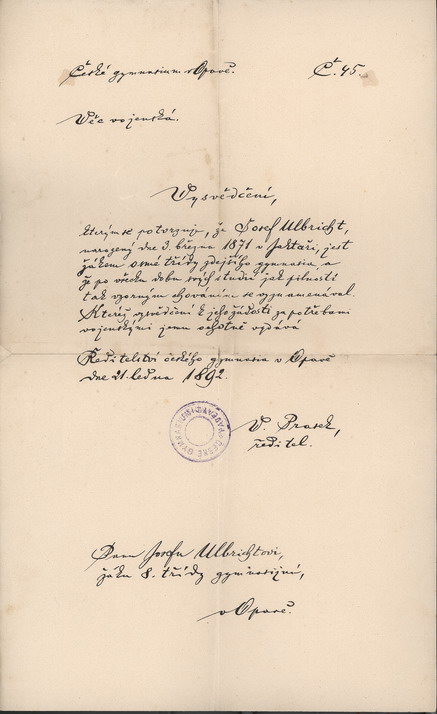 České gymnasium v Opavě. Č. 45.
Věc vojenská.
Vysvědčení,
kterým se potvrzuje, že Josef Ulbricht,
narozený dne 3. března 1871 v Jaktaři, jest
žákem osmé třídy zdejšího gymnasia, a
že po všecku dobu svých studií jak pilností
tak vzorným chováním se vyznamenával.
Kteréž vysvědčení k jeho žádosti za potřebami
vojenskými jemu ochotně vydává
Ředitelství českého gymnasia v Opavě
dne 21. ledna 1892.
ČESKÉ GYMNASIUM
V. Prasek,
ředitel.
Panu Josefu Ulbrichtovi,
žáku 8. třídy gymnasijní,
v Opavě.